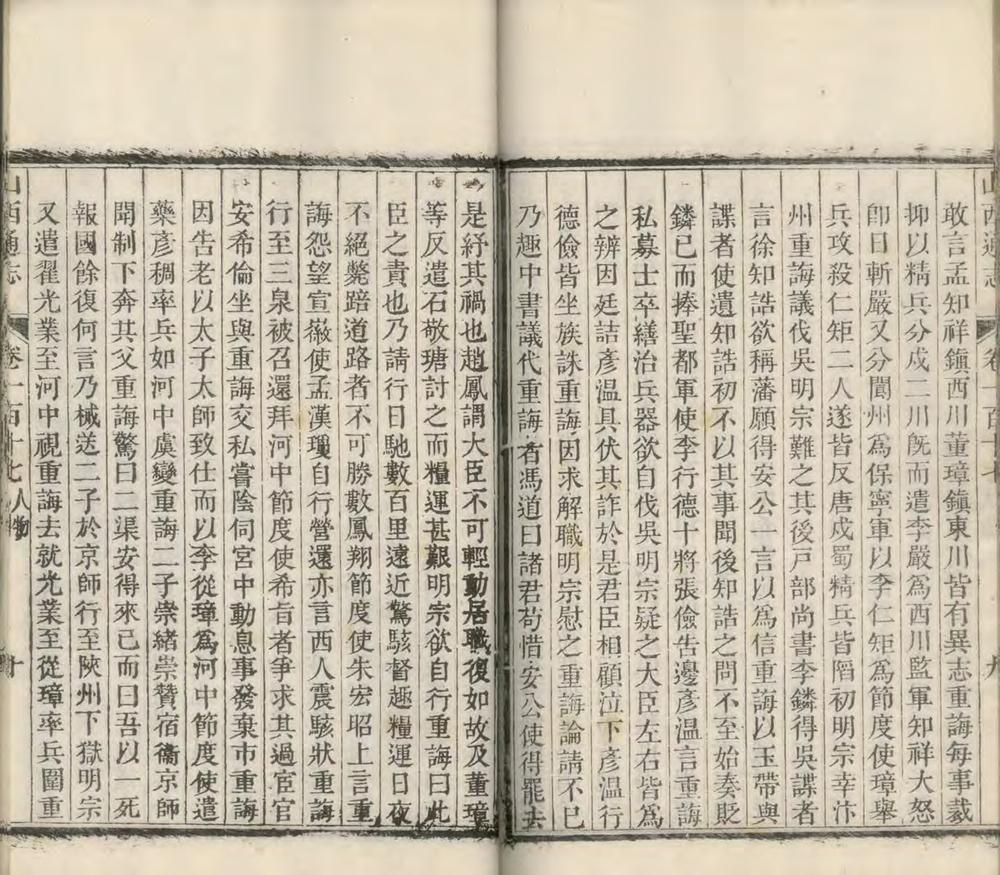 山西通志 卷一百十七 九
敢言孟知祥鎮西川董璋鎮東川皆有異志重誨每事裁
抑以精兵分戍二川旣而遣李嚴爲西川監軍知祥大怒
卽日斬嚴又分閬州爲保寧軍以李仁矩爲節度使璋舉
兵攻殺仁矩二人遂皆反唐戍蜀精兵皆陷初明宗幸汴
州重誨議伐吳明宗難之其後戸部尚書李鏻得吳諜者
言徐知誥欲稱藩願得安公一言以爲信重誨以玉帶與
諜者使遺知誥初不以其事聞後知誥之問不至始奏貶
鏻已而捧聖都軍使李行德十將張儉告邊彥溫言重誨
私募士卒繕治兵器欲自伐吳明宗疑之大臣左右皆爲
之辨因廷詰彥溫具伏其詐於是君臣相顧泣下彥溫行
德儉皆坐族誅重誨因求解職明宗慰之重誨論請不已
乃趣中書議代重誨者馮道曰諸君苟惜安公使得罷去
是紓其禍也趙鳳謂大臣不可輕動居職復如故及董璋
等反遣石敬瑭討之而糧運甚艱明宗欲自行重誨曰此
臣之責也乃請行日馳數百里遠近驚駭督趣糧運日夜
不絕斃踣道路者不可勝數鳳翔節度使朱宏昭上言重
誨怨望宣徽使孟漢瓊自行營還亦言西人震駭狀重誨
行至三泉被召還拜河中節度使希旨者爭求其過宦官
安希倫坐與重誨交私嘗陰伺宮中動息事發棄市重誨
因告老以太子太師致仕而以李從璋爲河中節度使遣
藥彥稠率兵如河中虞變重誨二子崇緒崇贊宿衞京師
聞制下奔其父重誨驚曰二渠安得來已而曰吾以一死
報國餘復何言乃械送二子於京師行至陝州下獄明宗
又遣翟光業至河中視重誨去就光業至從璋率兵圍重
山西通志 卷一百十七 人物 十